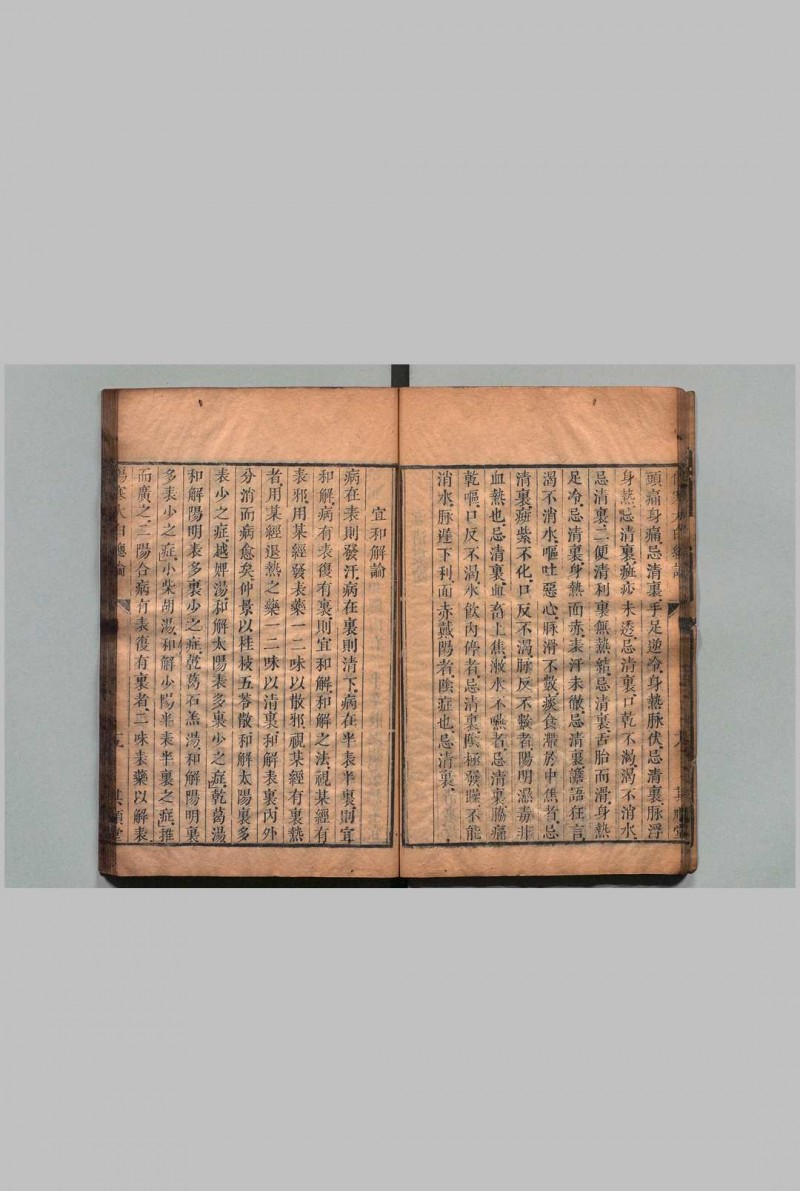 頭痛身痛、忌清裏、手足逆冷、身熱脉伏、忌清裏、脉浮
身熱、忌清裏、斑疹未透、忌清裏、口乾不渴、渴不消水、
忌清裏、二便清利、裏無熱結、忌清裏、舌胎而滑、身熱
足冷、忌清裏、身熱面赤、表汗未徹、忌清裏、譫語狂言、
渴不消水、嘔吐惡心、脉滑不數、痰食滯於中焦者、忌
清裏、斑紫不化、口反不渴、脉反不數者、陽明濕毒、非
血熱也、忌清裏、血畜上焦、漱水不嚥者、忌清裏、腸痛
乾嘔、口反不渴、水飲內停者、忌清裏、陰極發躁、不能
消水、脉遲下利、面赤戴陽者、陰症也、忌清裏、
宜和解論
病在表則發汗、病在裏則清下、病在半表半裏、則宜
和解、病有表復有裏、則宜和解、和解之法、視某經有
表邪、用某經發表藥一二味以散邪、視某經有裏熱
者、用某經退熱之藥一二味以清裏、和解表裏、內外
分消而病愈矣、仲景以桂枝五苓散、和解太陽裏多
表少之症、越婢湯、和解太陽表多裏少之症、乾葛湯、
和解陽明表多裏少之症、乾葛石羔湯、和解陽明裏
多表少之症、小柴胡湯、和解少陽半表半裏之症、推
而廣之、三陽合病、有表復有裏者、二味表藥以解表
傷寒大白總論
其順堂